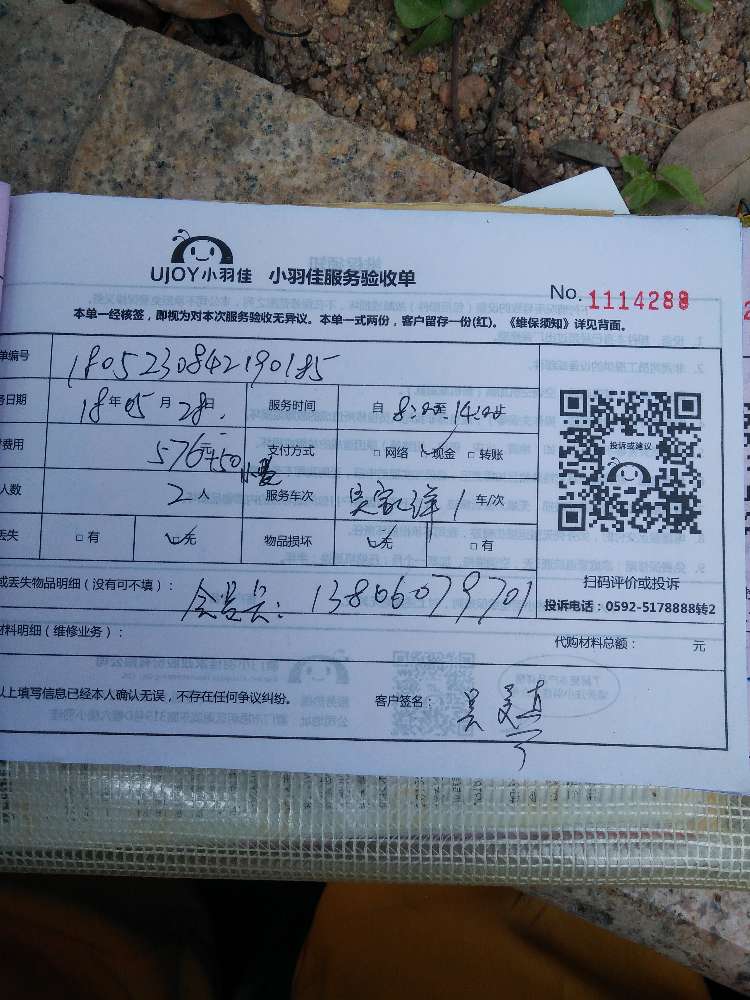 UJOY小羽佳 小羽佳服务验收单
No. 1114288
本单一经核签，即视为对本次服务验收无异议。本单一式两份，客户留存一份(红)。《维保须知》详见背面。
单编号 1805230842190185
日期 18年05月28日 服务时间 自 8:00至14:00止
费用 576元 +50 支付方式 □网络 ☑现金 □转账
人数 2人 服务车次 1 车/次
丢失 □有 ☑无 物品损坏 ☑无 □有
投诉或建议
扫码评价或投诉
投诉电话：0592-5178888转2
或丢失物品明细（没有可不填）： 会员号：13806079701
材料明细（维修业务）： 代购材料总额： 元
以上填写信息已经本人确认无误，不存在任何争议纠纷。 客户签名：